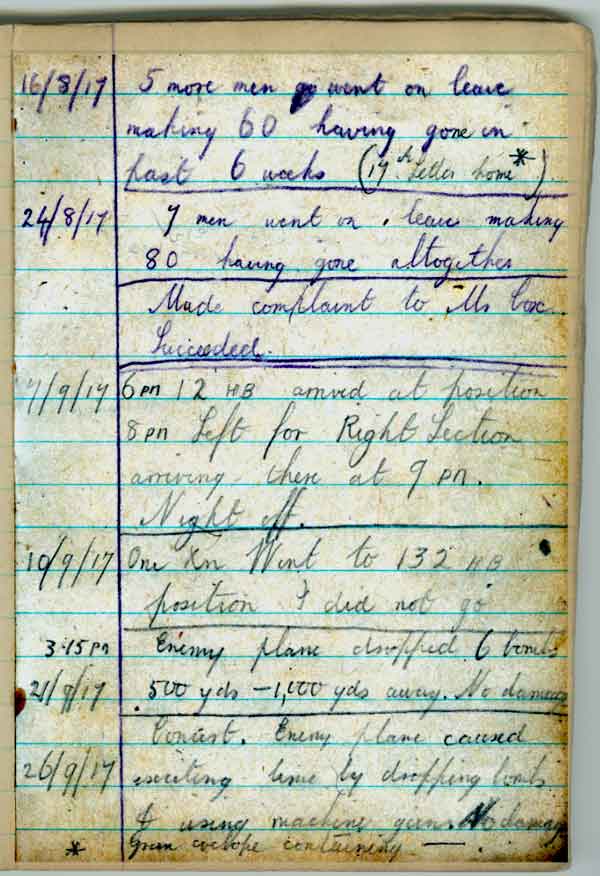 16/8/17 5 more men went on leave
making 60 having gone in
past 6 weeks (17th Letter home*)
24/8/17 7 men went on leave making
80 having gone altogether
Made complaint to Mr Cox.
Succeeded.
7/9/17 6 PM 12 HB arrived at position
8 PM Left for Right Section
arriving there at 9 PM.
Night off.
10/9/17 One Xn Went to 132 HB
position I did not go
3.15 PM Enemy plane dropped 6 bombs
21/9/17 500 yds - 1,000 yds away. No damage
Concert. Enemy plane caused
26/9/17 exciting time by dropping bombs
& using machine guns No damage
* Green envelope containing —.